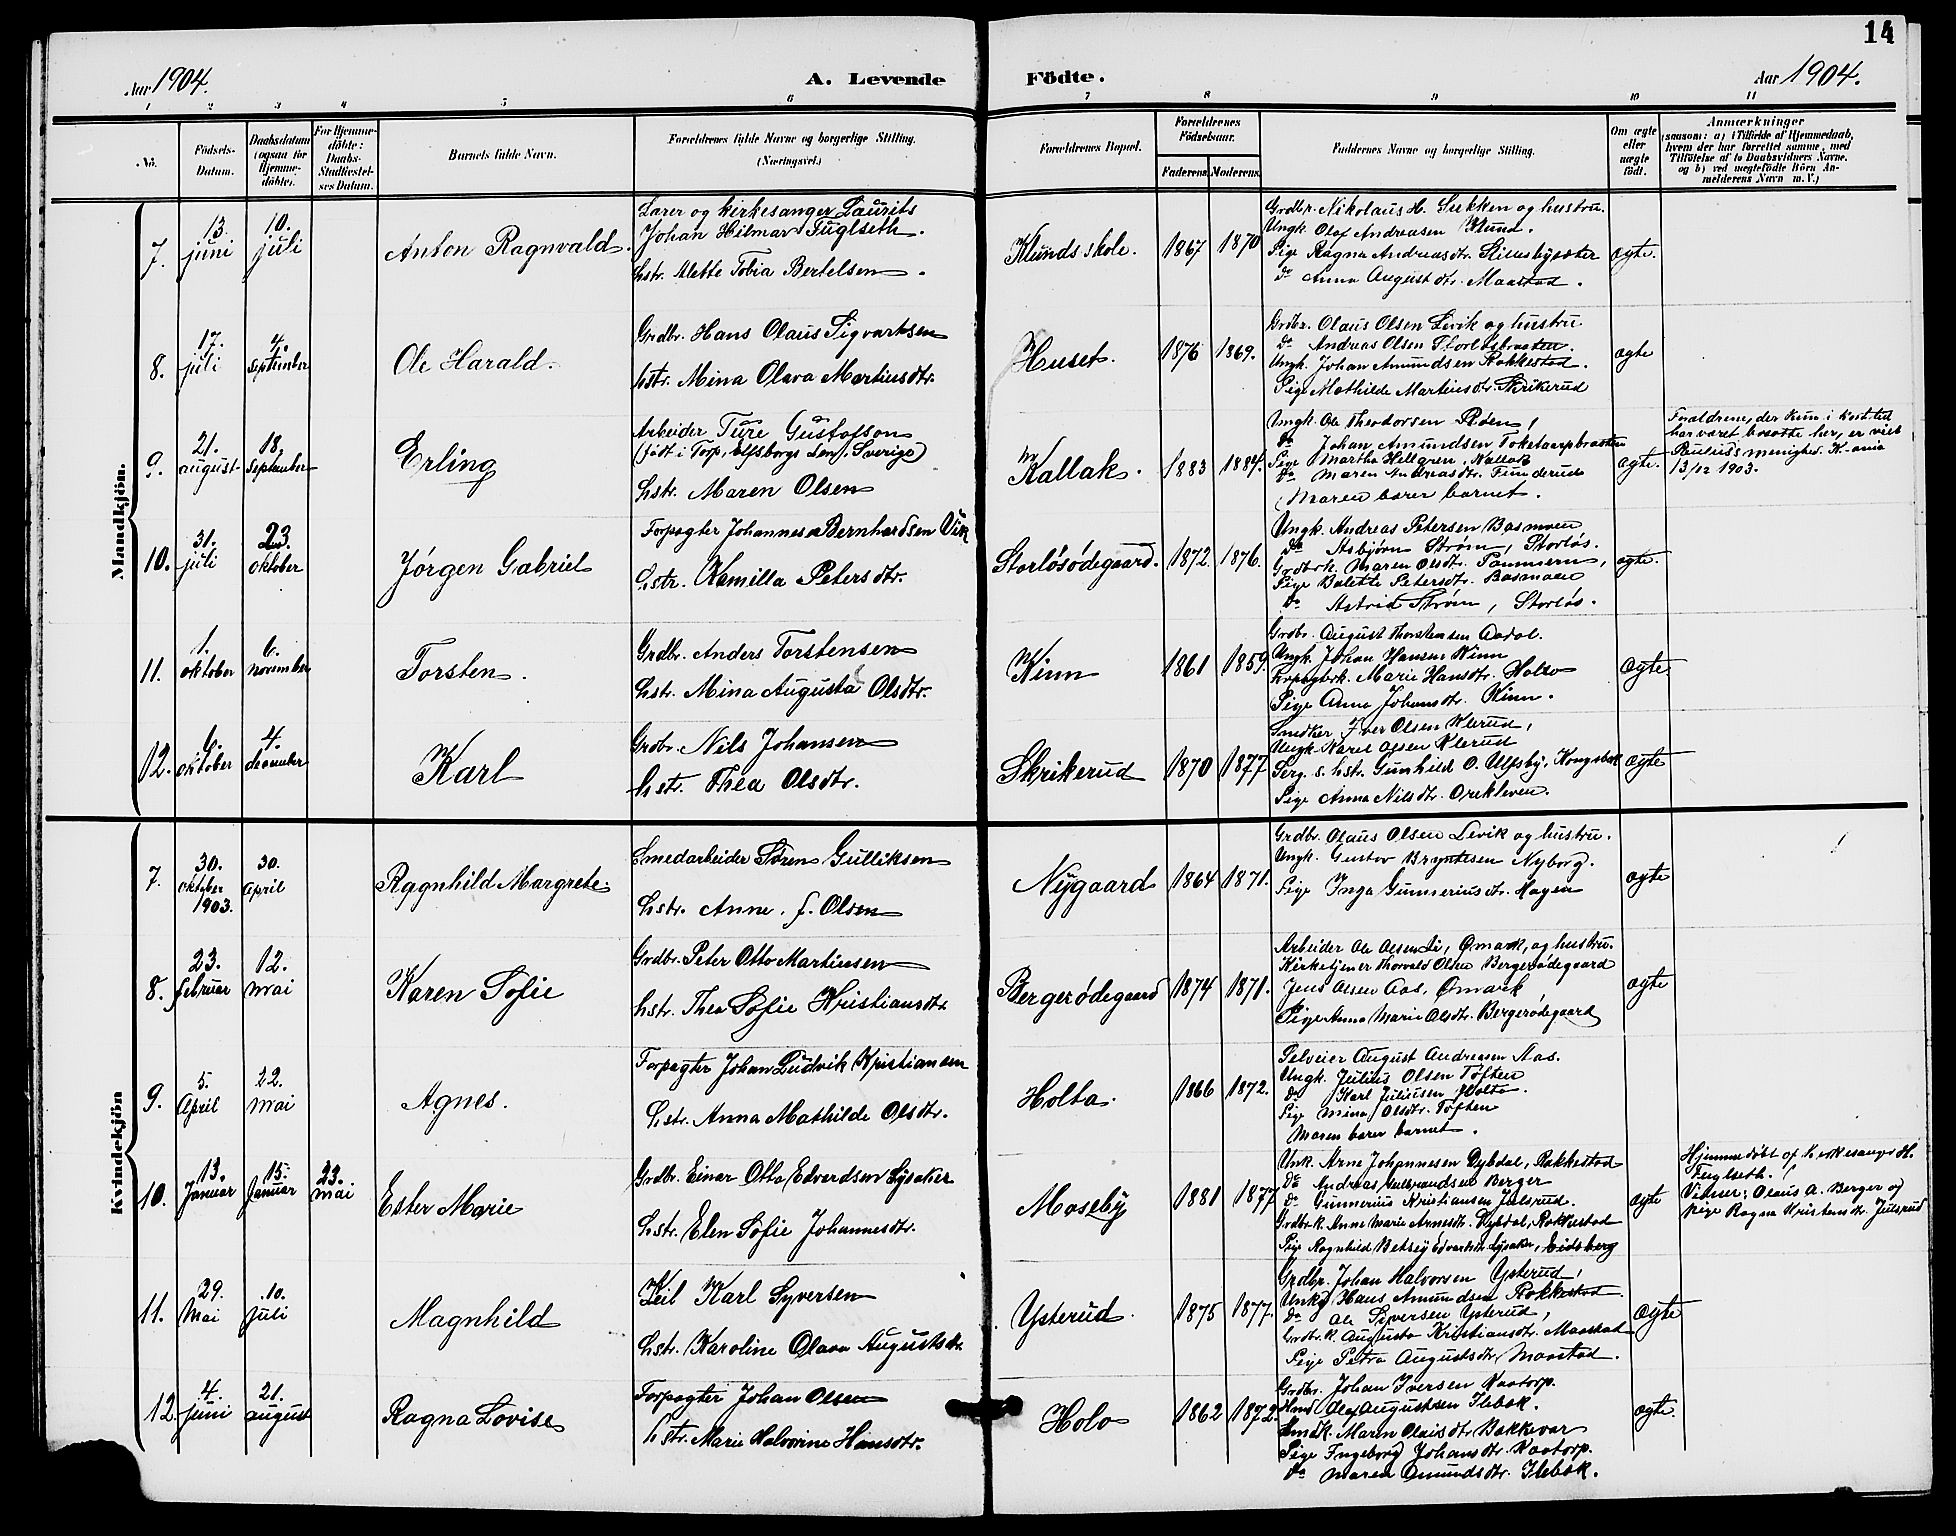 14
Aar 1904.
A. Levende Födte.
Aar 1904.
1 2 3 4 5 6 7 8 9 10 11
No.
Födsels-Datum.
Daabsdatum (ogsaa for Hjemmedöbte).
For Hjemmedöbte: Daabs-Stadfæstelses Datum.
Barnets fulde Navn.
Forældrenes fulde Navne og borgerlige Stilling.
(Næringsvei.)
Forældrenes Bopæl.
Forældrenes Födselsaar.
Faderens. Moderens.
Faddernes Navne og borgerlige Stilling.
Om ægte eller uægte födt.
Anmærkninger
(saasom: a) i Tilfælde af Hjemmedaab, hvem der har forrettet samme, med Tilföielse af to Daabsvidners Navne, og b) ved uægtefödte Börn Anmelderens Navn m. V.)
Mandkjön.
7. 13. juni 10. juli
Anton Ragnvald.
Lærer og kirkesanger Laurits
Johan Hilmar Fuglseth.
hstr. Mette Tobia Bertelsen.
Klunds skole. 1867 1870
Grdbr. Nikolaus H. Sukken og hustru.
Ungk. Olaf Andreasen Klund.
Pige Ragna Andreasdtr.
Do Anna Augustdtr. Maastad.
ægte.
8. 17. juli 4. september
Ole Harald.
Grdbr. Hans Olaus Sigvartsen
hstr. Mina Olava Martinsdtr.
Huset. 1876 1869.
Grdbr. Olaus Olsen Levik og hustru.
Do Andreas Olsen
Ungk. Johan Amundsen Rakkestad.
Pige Mathilde Martinsdtr. Skrikerud
ægte
9. 21. august 18. september
Erling
Arbeider Ture Gustafson
(født i Torp, Elfsborgs Len, Sverige)
hstr. Maren Olsen
Kallak. 1883 1884.
Ungk. Ole Theodorsen Røen,
Do Johan Amundsen
Pige Martha Hellgren, Kallak
Do Maren Andreasdtr. Funderud
(Maren bærer barnet.
ægte.
Forældrene, der kun i kort tid
har været bosatte her, er viet
Paulus's menighed. K-ania
13/12 1903.
10. 31. juli 23. oktober
Jörgen Gabriel
Forpagter Johannes Bernhardsen Vik
hstr. Kamilla Petersdtr.
Storløsødegaard. 1872. 1876.
Ungk. Andreas Petersen Basmoen
Do Asbjørn Strøm, Storløs.
Grdbrk. Maren Olsdtr.
Pige Balette Petersdtr. Basmoen
Do Astrid Strøm, Storløs.
ægte.
11. 1. oktober 6. november
Torsten.
Grdbr. Anders Torstensen
hstr. Mina Augusta Olsdtr.
Kinn 1861 1859.
Grdbr. August Thorstensen Aadal.
Ungk. Johan Hansen Kinn
Marie Hansdtr. Holvo
Pige Anna Johansdtr. Kinn.
ægte
12. 6. oktober 4. december
Karl
Grdbr. Nils Johansen
hstr. Thea Olsdtr.
Skrikerud 1870 1877
Iver Olsen Klerud,
Ungk. Karel Olsen Klerud
Serg. s. hstr. Gunhild O. Ulfsby, Kongsbek
Pige Anna Nilsdtr. Orekleven.
ægte
Kvindekjön
7. 30. oktober 1903. 30. April
Ragnhild Margrete.
Smedarbeider Søren Gulliksen
hstr. Anne. J. Olsen
Nygaard 1864 1871.
Grdbr. Olaus Olsen Levik og hustru.
Ungk. Gustav Bryntesen Nyborg.
Pige Inga Gunneriusdtr. Hagen
ægte
8. 23. februar 12. mai
Karen Sofie
Grdbr. Peter Otto Martinsen
hstr. Thea Sofie Kristiansdtr
Bergerødegaard 1874 1871.
Arbeider Ole Olsen Li, Ømark, og hustru.
Kirketjener Thorvald Olsen Bergerødegaard
Jens Olsen Aas, Ømark
Pige Anna Marie Olsdtr. Bergerødegaard
ægte
9. 5. April 22. Mai
Agnes.
Forpagter Johan Ludvik Kristiansen
hstr. Anna Mathilde Olsdtr.
Holta. 1866 1872.
Selveier August Andreasen Aas.
Ungk. Julius Olsen Toften
Do Karl Juliusen Holta.
Pige Mina Olsdtr. Toften
Maren bærer barnet.
10. 13. Januar 15. Januar 23. mai
Ester Marie
Grdbr. Einar Otto Edvardsen Lysaker
hstr. Elen Sofie Johannesdtr.
Moseby 1881 1877
Unk. Arne Johannesen Dybdal, Rakkestad
Do Andreas Berger
Do Gunnerius Kristiansen Julsrud.
Grdbrk. Anne Marie Arnesdtr. Dybdal, Rakkestad
Pige Ragnhild Betsey Edvardsdtr. Lysaker, Eidsberg
ægte
Hjemmedøbt af kirkesanger H.
Fuglseth.
Vidner: Olaus A. Berger og
pige Ragna Kristiansdtr. Julsrud
11. 29. Mai 10. juli
Magnhild
Karl Syversen
hstr. Karoline Olava Augustsdtr.
Ysterud. 1875 1877.
Grdbr. Johan Halvorsen Ysterud,
Unk. Hans Amundsen Rakkestad
Do Ole Siversen Ysterud,
Grdbr.k. Augusta Kristiansdtr. Maastad
Pige Petra Augustsdtr. Maastad.
ægte
12 4. juni 21. august
Ragna Lovise
Forpagter Johan Olsen
hstr. Marie Halvorine Hansdtr.
Holo 1862 1872.
Grdbr. Johan Iversen Kaatorp.
Olaf Augustsen Ilebæk.
Maren Olaisdtr. Bakkevar
Pige Ingeborg Johansdtr. Kaatorp.
Do Maren Amundsdtr. Ilebæk.
ægte.